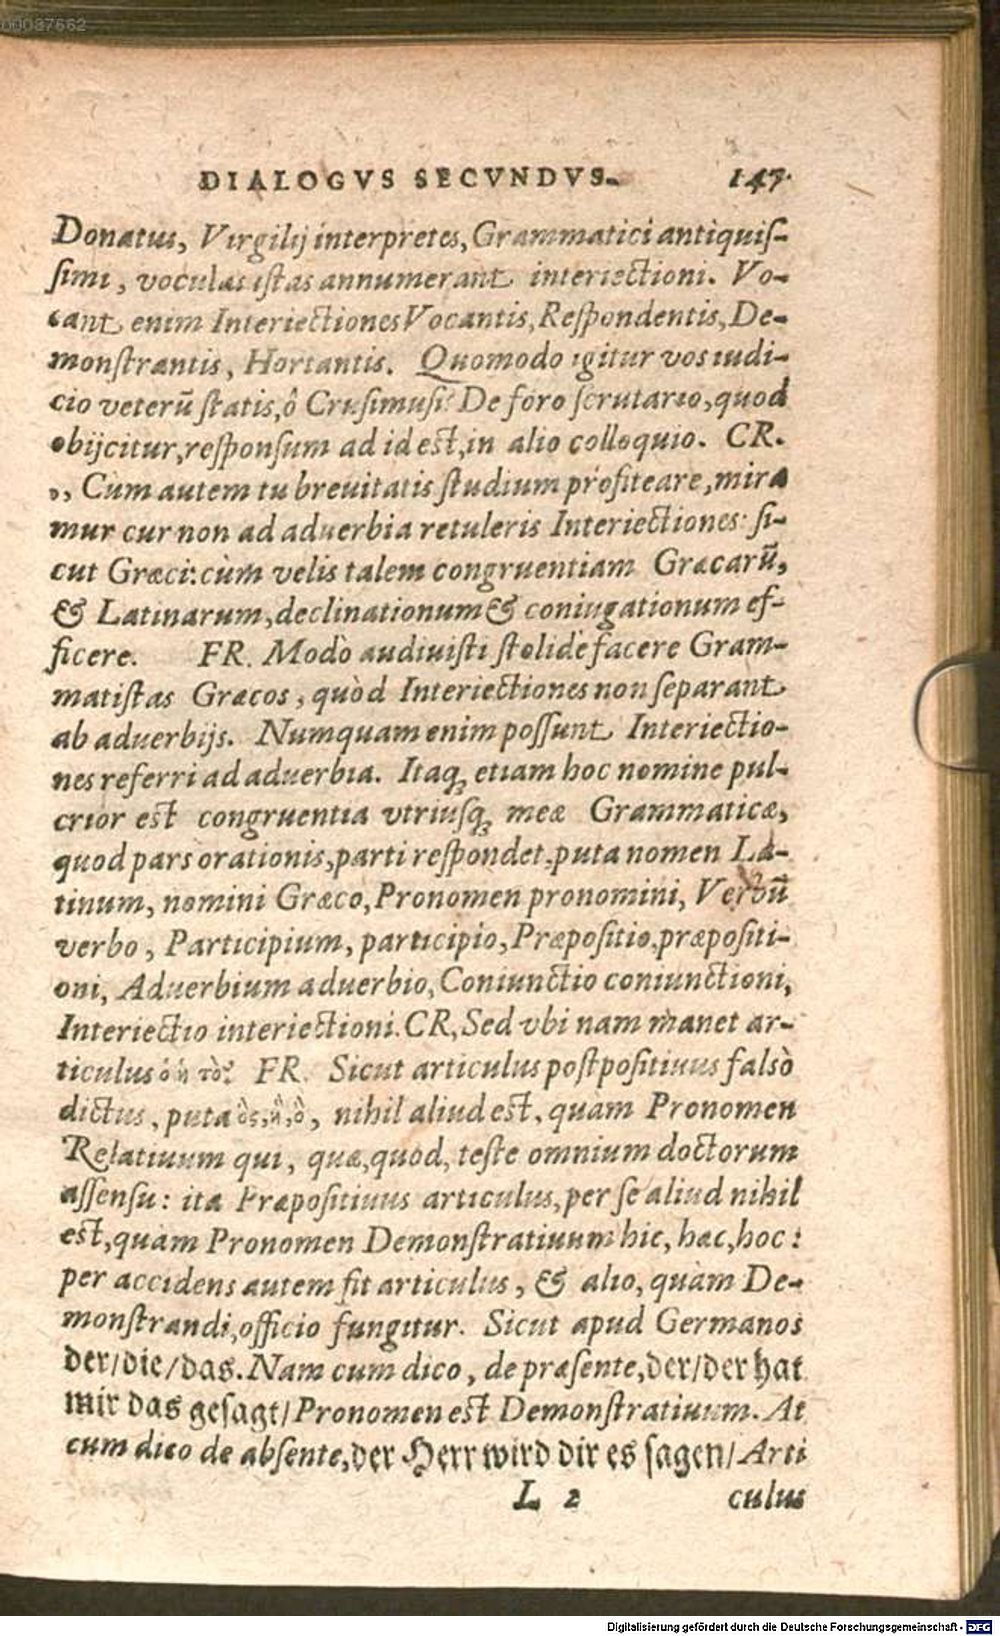 00037662
DIALOGVS SECVNDVS. 147.
Donatus, Virgilij interpretes, Grammatici antiquiſ-
ſimi, voculas iſtas annumerant interiectioni. Vo-
cant enim Interiectiones Vocantis, Reſpondentis, De-
monſtrantis, Hortantis. Quomodo igitur vos iudi-
cio veterū ſtatis, ô Cruſimuſi? De foro ſcrutario, quod
obijcitur, reſponſum ad id eſt, in alio colloquio. CR.
,, Cum autem tu breuitatis ſtudium profiteare, mira
mur cur non ad aduerbia retuleris Interiectiones: ſi-
cut Græci: cùm velis talem congruentiam Græcarū,
& Latinarum, declinationum & coniugationum ef-
ficere. FR. Modò audiuiſti ſtolidè facere Gram-
matiſtas Græcos, quòd Interiectiones non ſeparant
ab aduerbijs. Numquam enim poſſunt Interiectio-
nes referri ad aduerbia. Itaq; etiam hoc nomine pul-
crior eſt congruentia vtriuſq; meæ Grammaticæ,
quod pars orationis, parti reſpondet, puta nomen La-
tinum, nomini Græco, Pronomen pronomini, Verbū
verbo, Participium, participio, Præpoſitio, præpoſiti-
oni, Aduerbium aduerbio, Coniunctio coniunctioni,
Interiectio interiectioni. CR, Sed vbi nam manet ar-
ticulus ὁ ἡ τὸ? FR. Sicut articulus poſtpoſitiuus falsò
dictus, puta ὃς, ἣ, ὃ, nihil aliud eſt, quàm Pronomen
Relatiuum qui, quæ, quod, teſte omnium doctorum
aſſenſu: ita Præpoſitiuus articulus, per ſe aliud nihil
eſt, quàm Pronomen Demonſtratiuum hic, hæc, hoc:
per accidens autem fit articulus, & alio, quàm De-
monſtrandi, officio fungitur. Sicut apud Germanos
der/die/das. Nam cum dico, de præſente, der/der hat
mir das geſagt/ Pronomen eſt Demonſtratiuum. At
cum dico de abſente, der Herr wird dir es ſagen/ Arti
L 2 culus
Digitalisierung gefördert durch die Deutsche Forschungsgemeinschaft - DFG